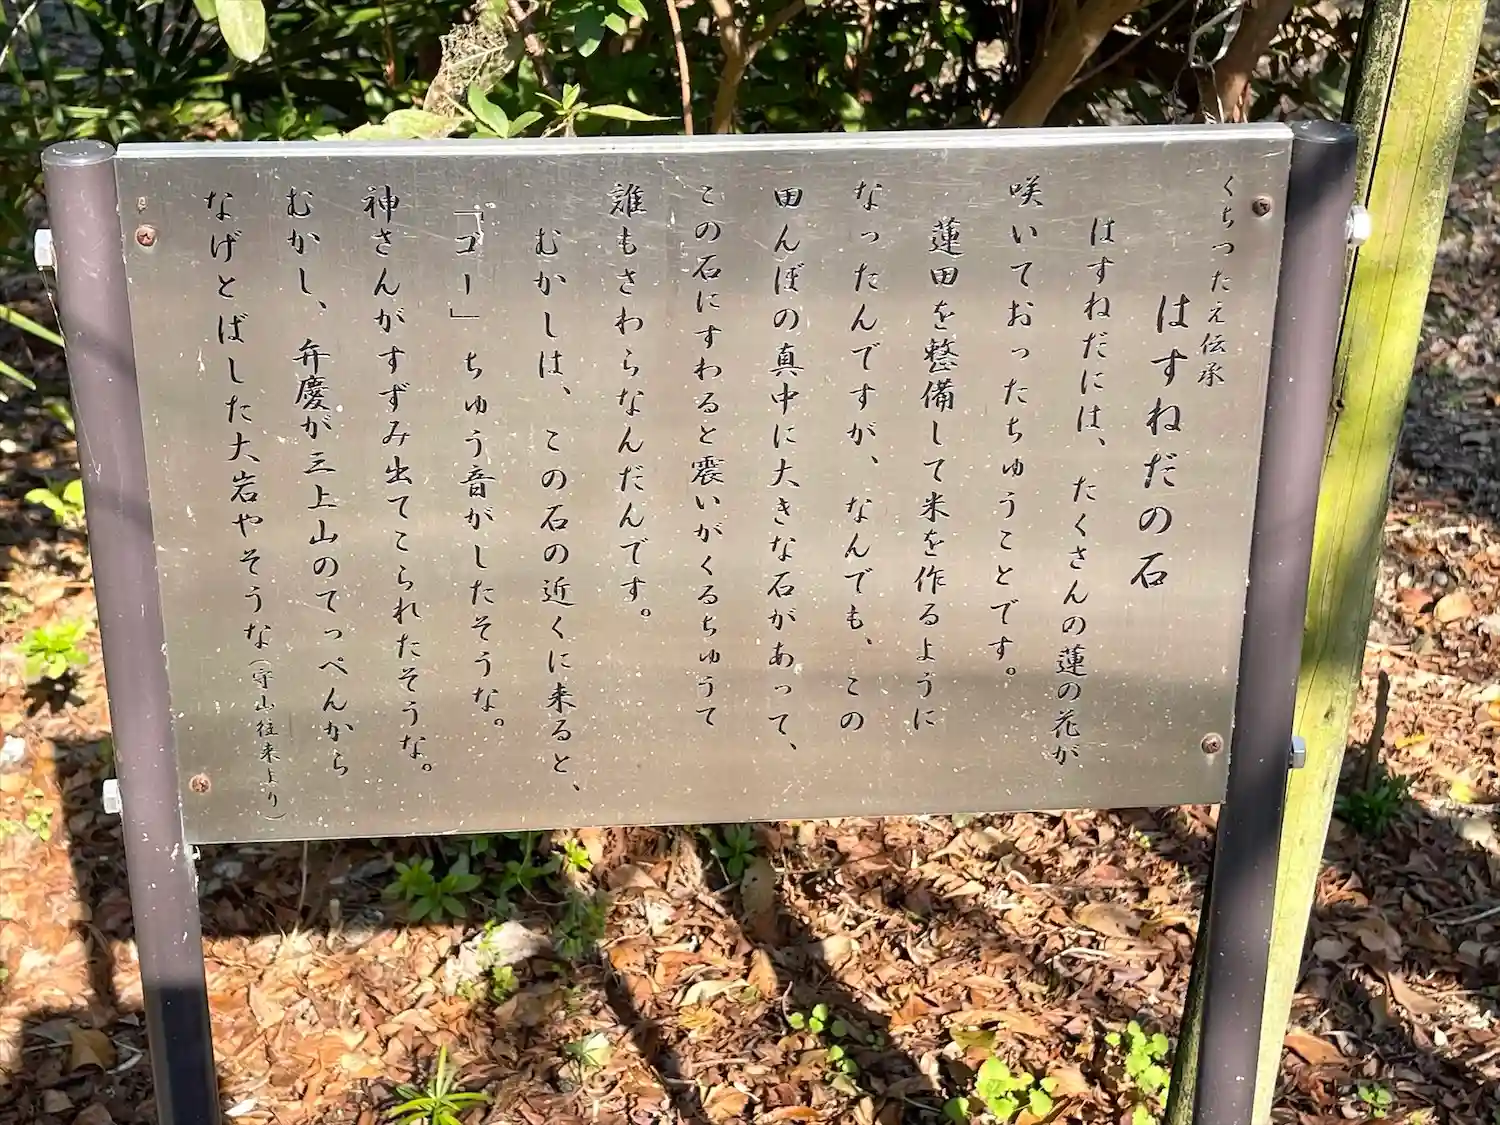 くちつたえ伝承
はすねだの石
はすねだには、たくさんの蓮の花が
咲いておったちゅうことです。
蓮田を整備して米を作るように
なったんですが、なんでも、この
田んぼの真中に大きな石があって、
この石にすわると震いがくるちゅうて
誰もさわらなんだんです。
むかしは、この石の近くに来ると、
「コー」ちゅう音がしたそうな。
神さんがすずみ出てこられたそうな。
むかし、弁慶が三上山のてっぺんから
なげとばした大岩やそうな(守山往来より)